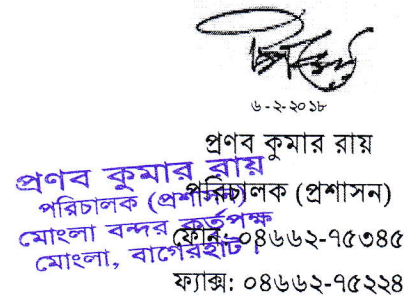 ৬-২-২০১৮
প্রণব কুমার রায়
পরিচালক (প্রশাসন)
ফোন: ০৪৬৬২-৭৫৩৪৫
ফ্যাক্স: ০৪৬৬২-৭৫২২৪
প্রণব কুমার রায়
পরিচালক (প্রশাসন)
মোংলা বন্দর কর্তৃপক্ষ
মোংলা, বাগেরহাট।